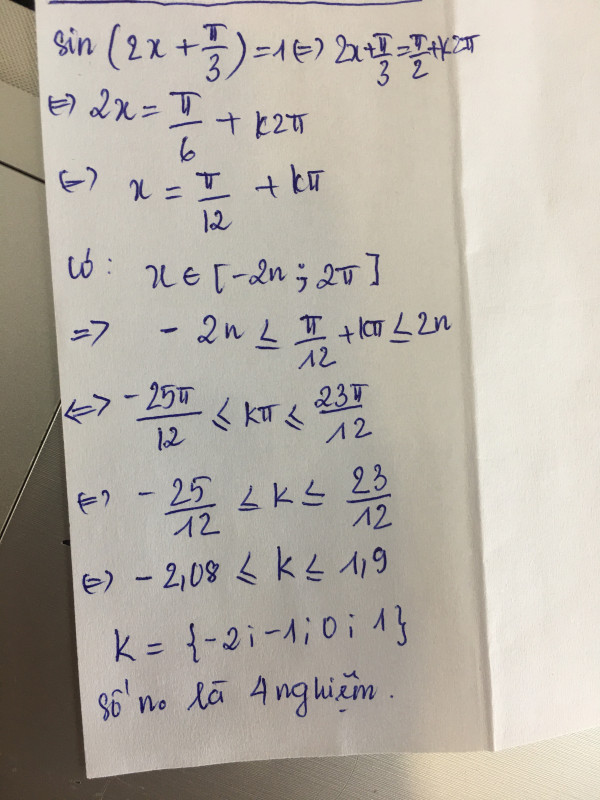 sin (2x + π/3) = 1 <=> 2x + π/3 = π/2 + k2π
<=> 2x = π/6 + k2π
<=> x = π/12 + kπ
Có : x ∈ [-2π ; 2π]
=> - 2π ≤ π/12 + kπ ≤ 2π
<=> -25π/12 ≤ kπ ≤ 23π/12
<=> - 25/12 ≤ k ≤ 23/12
<=> - 2,08 ≤ k ≤ 1,9
k = {-2; -1; 0; 1}
số no là 4 nghiệm.